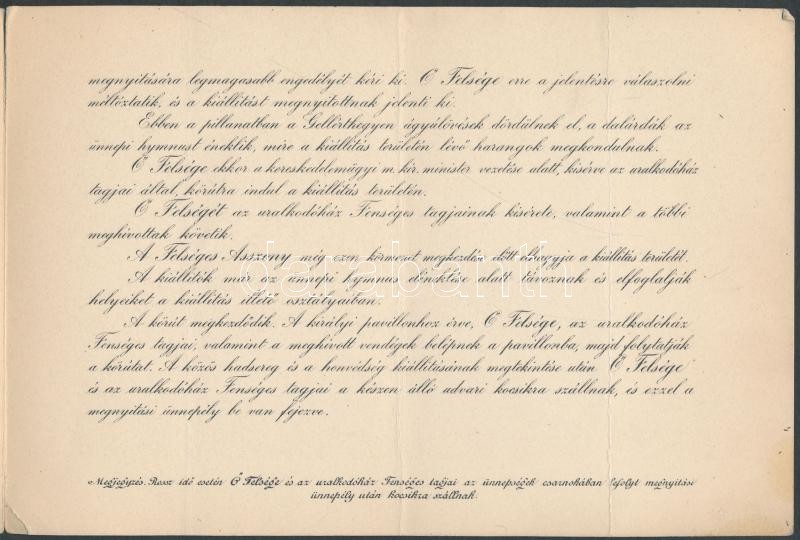 megnyitására legmagasabb engedélyét kéri ki. Ő Felsége erre a jelentésre válaszolni
méltóztatik, és a kiállítást megnyitottnak jelenti ki.
Ebben a pillanatban a Gellérthegyen ágyúlövések dördülnek el, a dalárdák az
ünnepi hymnust éneklik, mire a kiállítás területén lévő harangok megkondulnak.
Ő Felsége ekkor a kereskedelemügyi m. kir. minister vezetése alatt, kisérve az uralkodóház
tagjai által, körútra indul a kiállítás területén.
Ő Felségét az uralkodóház Fenséges tagjainak kisérete, valamint a többi
meghívottak követik.
A Felséges Asszony még ezen körmenet megkezdése előtt elhagyja a kiállítás területét.
A kiállítók már az ünnepi hymnus éneklése alatt távoznak és elfoglalják
helyeiket a kiállítás illető osztályaiban.
A körút megkezdődik. A királyi pavillonhoz érve, Ő Felsége, az uralkodóház
Fenséges tagjai, valamint a meghívott vendégek belépnek a pavillonba, majd folytatják
a körútat. A közös hadsereg és a honvédség kiállításának megtekintése után Ő Felsége
és az uralkodóház Fenséges tagjai a készen álló udvari kocsikra szállnak, és ezzel a
megnyitási ünnepély be van fejezve.
Megjegyzés. Rossz idő esetén Ő Felsége és az uralkodóház Fenséges tagjai az ünnepségek csarnokában lefolyt megnyitási
ünnepély után kocsikra szállnak.
darabanth